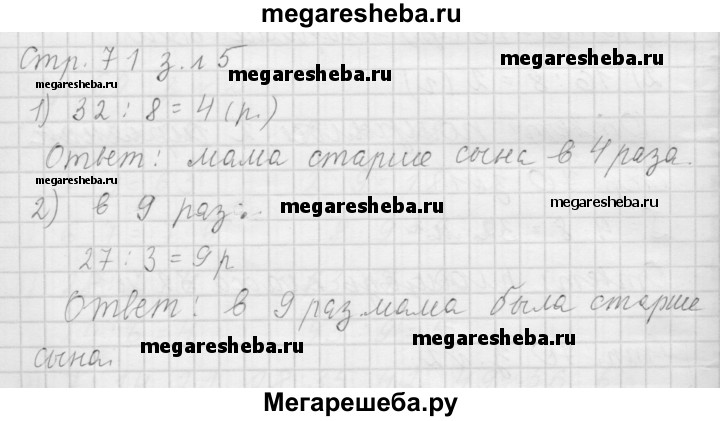 megaresheba.ru
Стр. 71 з. 15
megaresheba.ru
megaresheba.ru
megaresheba.ru
1) 32 : 8 = 4 (р.)
Ответ: мама старше сына в 4 раза.
megaresheba.ru
2) в 9 раз:.
megaresheba.ru
megaresheba.ru
27 : 3 = 9 р
Ответ: в 9 раз мама была старше
сына.
megaresheba.ru
megaresheba.ru
Мегарешеба.ру